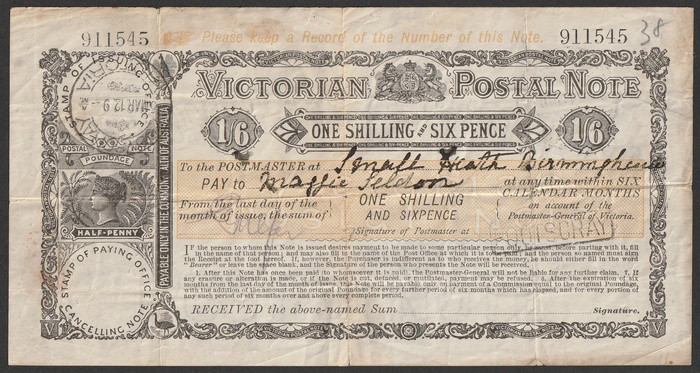 911545 Please keep a Record of the Number of this Note. 911545 38
STAMP OF ISSUING OFFICE
MAR 12 9
VICTORIAN POSTAL NOTE
1/6 ONE SHILLING AND SIX PENCE 1/6
POSTAL NOTE
POUNDAGE
HALF-PENNY
PAYABLE ONLY IN THE COMMONWEALTH OF AUSTRALIA
STAMP OF PAYING OFFICE
CANCELLING NOTE
To the POSTMASTER at Small Heath Birmingham
PAY to Maggie Seldon at any time within SIX
From the last day of the ONE SHILLING CALENDAR MONTHS
month of issue, the sum of AND SIXPENCE on account of the
Postmaster-General of Victoria.
Signature of Postmaster at FOOTSCRAY
IF the person to whom this Note is issued desires payment to be made to some particular person only, he must, before parting with it, fill
in the name of that person; and may also fill in the name of the Post Office at which it is to be paid; and the person so named must sign
the Receipt at the foot hereof. If, however, the Purchaser is indifferent as to who receives the money, he should either fill in the word
"Bearer" or leave the space blank, and the Signature of the person who presents the Note will be required.
1. After this Note has once been paid (to whomsoever it is paid), the Postmaster-General will not be liable for any further claim. 2. If
any erasure or alteration is made, or if the Note is cut, defaced, or mutilated, payment may be refused. 3. After the expiration of six
months from the last day of the month of issue, this Note will be payable only on payment of a Commission equal to the original Poundage,
with the addition of the amount of the original Poundage for every further period of six months which has elapsed, and for every portion of
any such period of six months over and above every complete period.
RECEIVED the above-named Sum Signature.